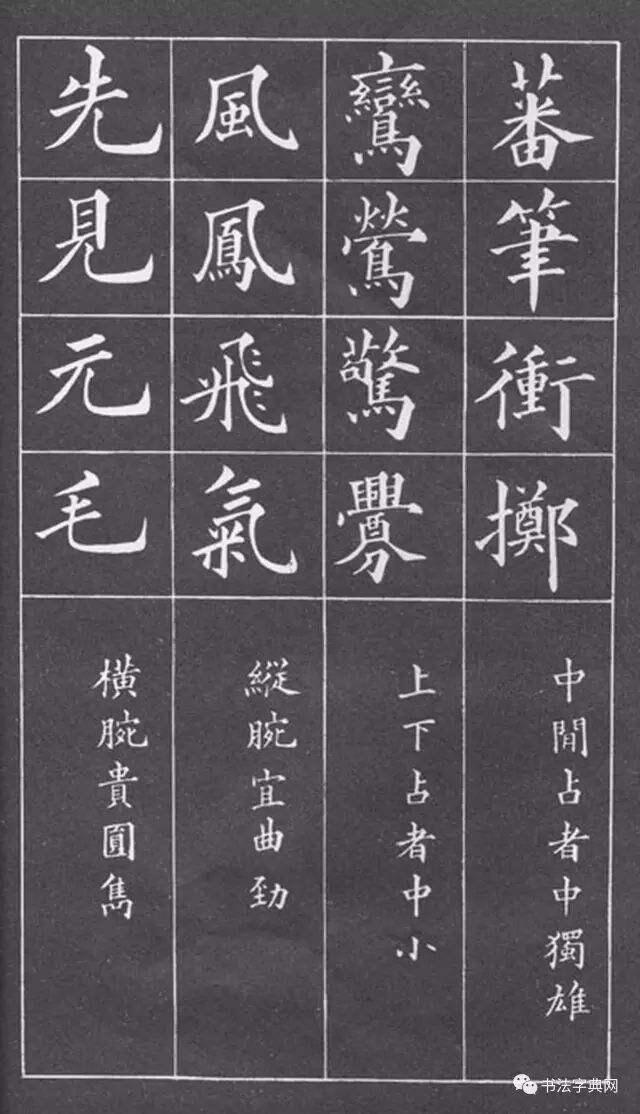 蕃筆衝擲
中閒占者中獨雄
鸞鶯驚釁
上下占者中小
風鳳飛氣
縱腕宜曲勁
先見元毛
橫腕貴圓雋
书法字典网